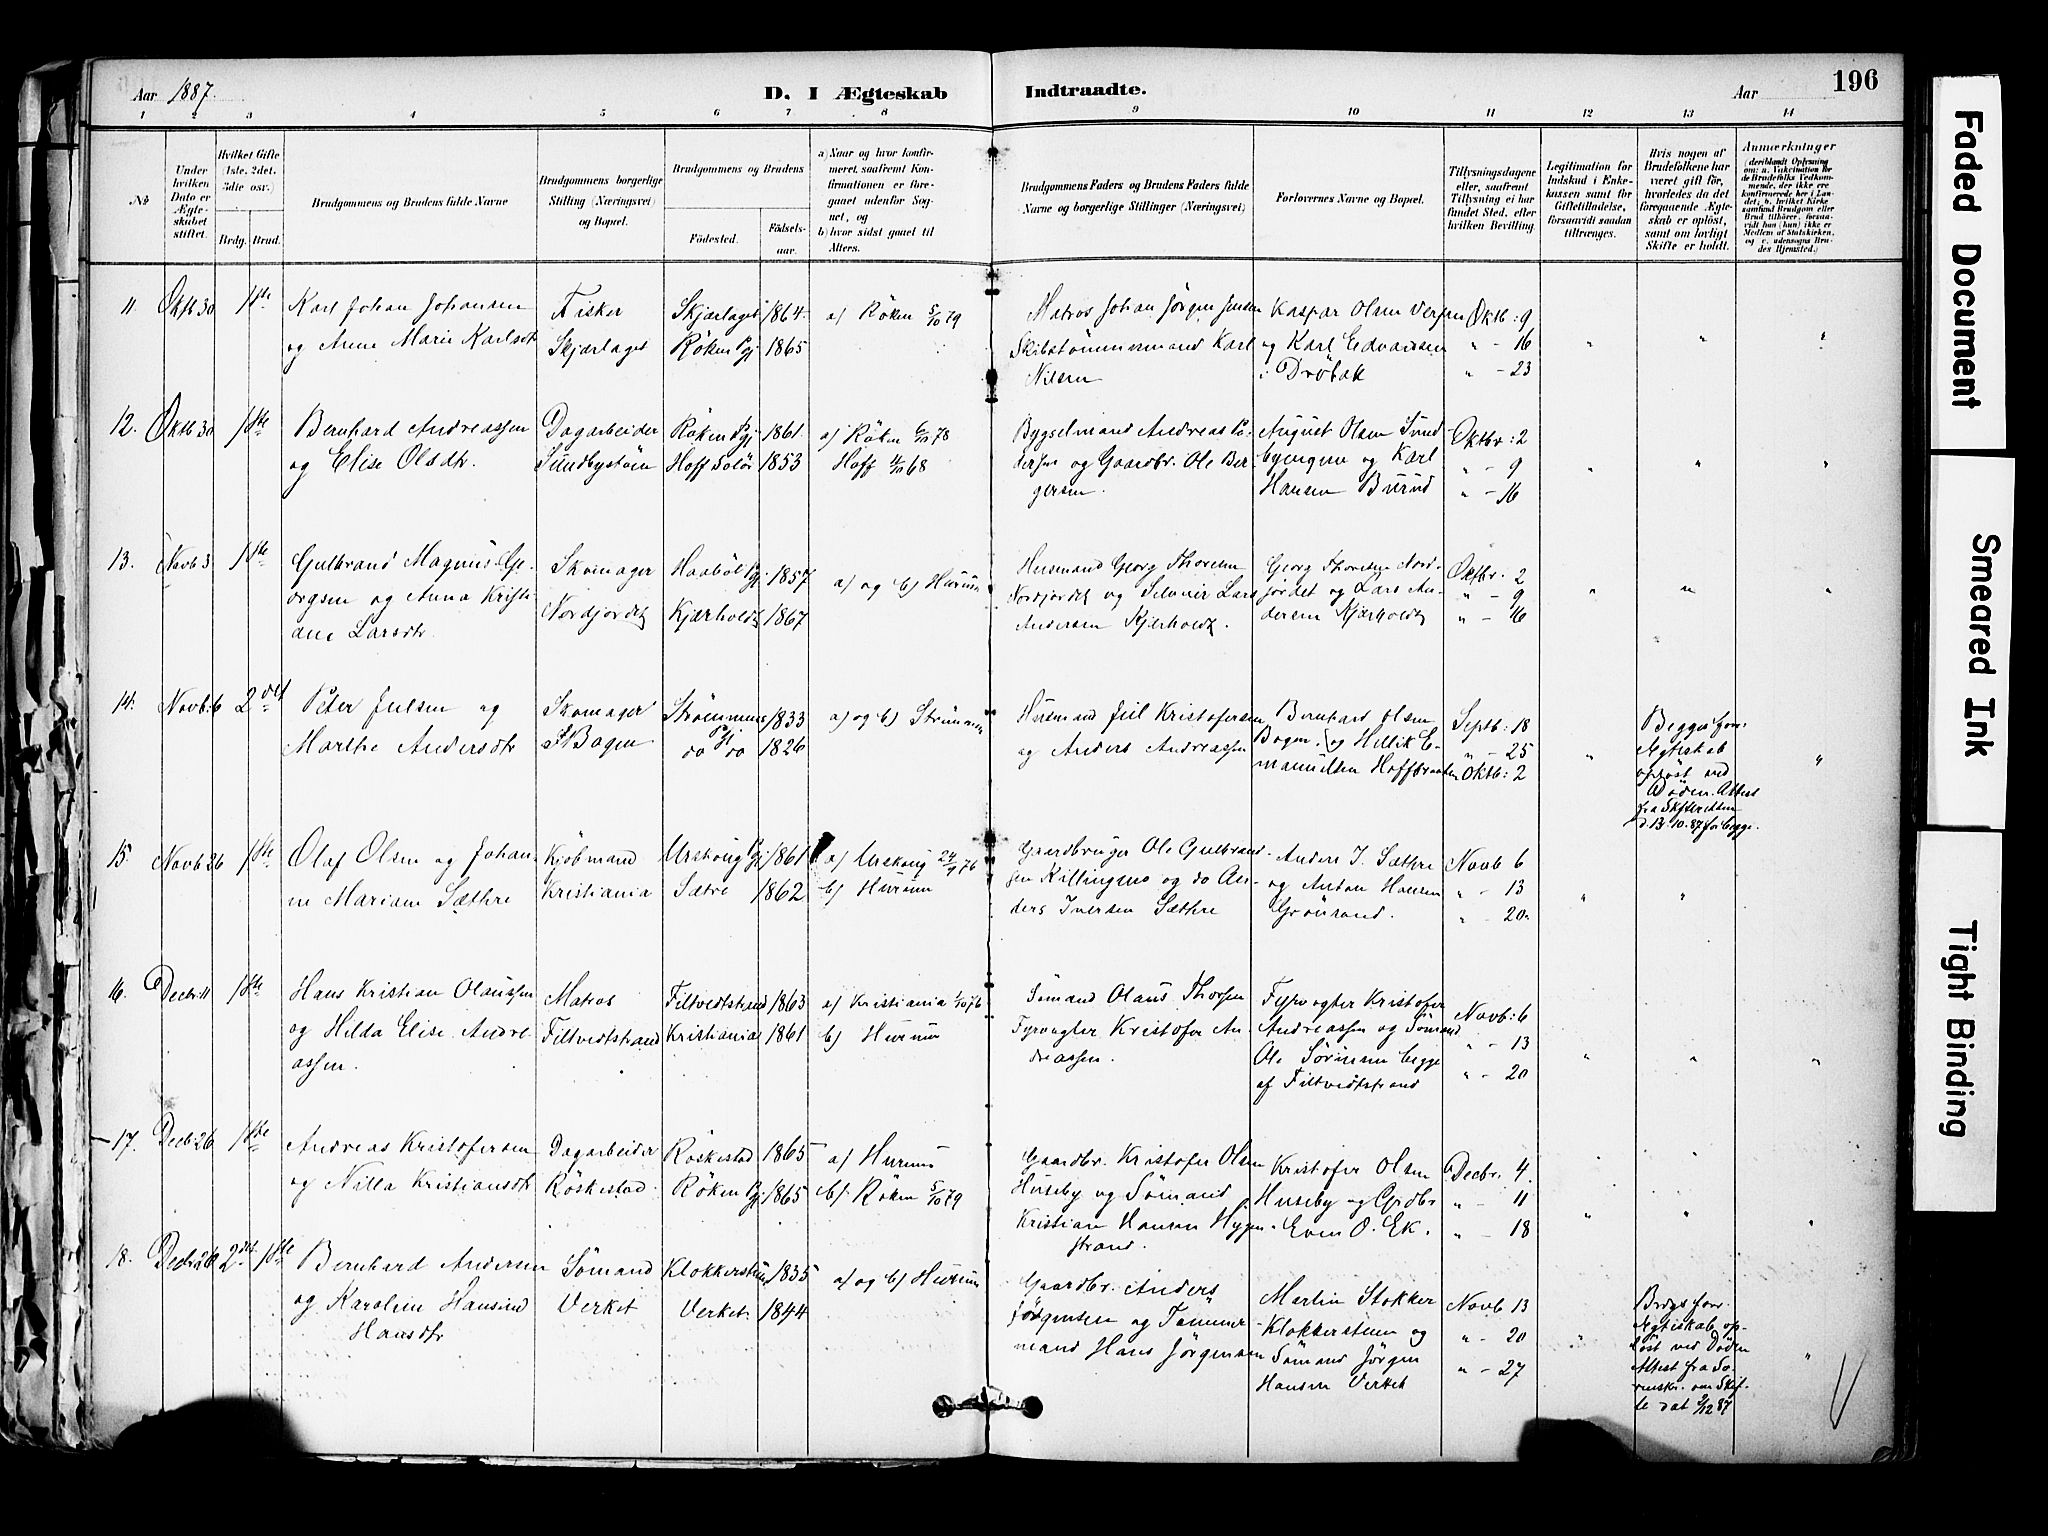 Aar 1887.
D. I Ægteskab
Indtraadte.
Aar
196
1 2 3 4 5 6 7 8 9 10 11 12 13 14
No
Under hvilken Dato er Ægteskabet stiftet.
Hvilket Gifte (1ste, 2det, 3die osv.)
Brdg. Brud.
Brudgommens og Brudens fulde Navne
Brudgommens borgerlige Stilling (Næringsvei) og Bopæl.
Brudgommens og Brudens
Födested.
Födselsaar.
a) Naar og hvor konfirmeret, saafremt Konfirmationen er foregaaet udenfor Sognet, og
b) hvor sidst gaaet til Alters.
Brudgommens Faders og Brudens Faders fulde Navne og borgerlige Stillinger (Næringsvei)
Forlovernes Navne og Bopæl.
Tillysningsdagene eller, saafremt Tillysning ei har fundet Sted, efter hvilken Bevilling.
Legitimation for Indskud i Enkekassen samt for Giftetilladelse, forsaavidt saadan tiltrænges.
Hvis nogen af Brudefolkene har været gift før, hvorledes da det foregaaende Ægteskab er opløst, samt om lovligt Skifte er holdt.
Anmærkninger
11. Oktb 30 1ste
Karl Johan Johansen
og Anne Marie Karlsdtr
Fisker
Skjærlaget
Skjærlaget 1864
Röken Pgj 1865
a) Röken 5/10 79
Matros Johan Jörgen Jensen
Skibstömmermand Karl
Nilsen
Kaspar Olsen
og Karl Edvardsen
i Dröbak
Oktb: 9
" - 16
" - 23
12. Oktb 30 1ste
Bernhard Andreassen
og Elise Olsdtr.
Dagarbeider
Sundbystöen
Röken Pgj 1861
Hoff Solör 1853
a) Röken 78
Hoff 68
Bygselmand Andreas Pe-
dersen og Gaardbr. Ole Ber-
gersen.
August Olsen Sund-
byengene og Karl
Hansen Burud
Oktbr: 2
" - 9
" - 16
13. Novb 3 1ste
Gulbrand Magnus Ge-
orgsen og Anna Kristi-
ane Larsdtr.
Skomager
Nordjordet
Haaböl Pgj 1857
Kjærholdt 1867
a) og b) Hurum
Husmand Georg Thoresen
Nordjordet og Lars
Andersen Kjærholdt.
Georg Thoresen Nord-
jordet og Lars An-
dersen Kjærholdt
Oktbr. 2
" - 9
" - 16
14. Novb: 6 2det
Peter Julsen og
Marthe Andersdtr
Skomager
Bogen
Strömmens 1833
do Pgj do 1826
a) og b) Strömmen
Husmand Juul Kristofersen
og Anders Andreassen
Bernhard Olsen
Bogen, og Hellik E-
manuelsen Hoffsbraaten
Septb: 18
" - 25
Oktb: 2
Begges forr.
Ægteskab
oplöst ved
Döden. Attest
fra Skifteretten
d. 13.10.87 for begge.
15. Novb 26 1ste
Olaf Olsen og Johan-
ne Mariane Sæthre
Kjöbmand
Kristiania
Urskoug Pgj 1861
Sætre 1862
a) Urskoug 24/9 76
b) Hurum
Gaardbruger Ole Gulbrand-
sen Killingmo og do An-
ders Iversen Sæthre
Anders I. Sæthre
og Anton Hansen
Grönsand.
Novb 6
" - 13
" - 20
16. Decbr: 11 1ste
Hans Kristian Olaussen
og Hilda Elise Andre-
assen.
Matros
Filtvedtstrand
Filtvedtstrand 1863
Kristiania 1861
a) Kristiania 1/10 76
b) Hurum
Sömand Olaus Thorsen
Fyrvogter Kristofer An-
dreassen.
Fyrvogter Kristofer
Andreassen og Sömand
Ole Sörensen begge
af Filtvedtstrand
Novb: 6
" - 13
" - 20
17. Decbr 26 1ste
Andreas Kristofersen
og Nilla Kristiansdtr
Dagarbeider
Röskestad
Röskestad 1865
Röken Pgj 1865
a) Hurum
b) Röken 5/10 79
Gaardbr. Kristofer Olsen
Huseby og Sömand
Kristian Hansen Hygen-
strand.
Kristofer Olsen
Huseby og Grdbr
Even O. Ek.
Decbr. 4
" - 11
" - 18
18. Decbr 26 2det 1ste
Bernhard Andersen
og Karoline Hansine
Hansdtr
Sömand
Verket
Klokkerstuen 1835
Verket 1844
a) og b) Hurum
Gaardbr. Anders
Jörgensen og Tömmer-
mand Hans Jörgensen
Martin Stokker
Klokkerstuen og
Sömand Jörgen
Hansen Verket
Novb 13
" - 20
" - 27
Brdgs forr.
Ægteskab op-
löst ved Döden
Attest fra So-
renskr. om Skif-
te dat 9/12 87
Faded Document
Smeared Ink
Tight Binding